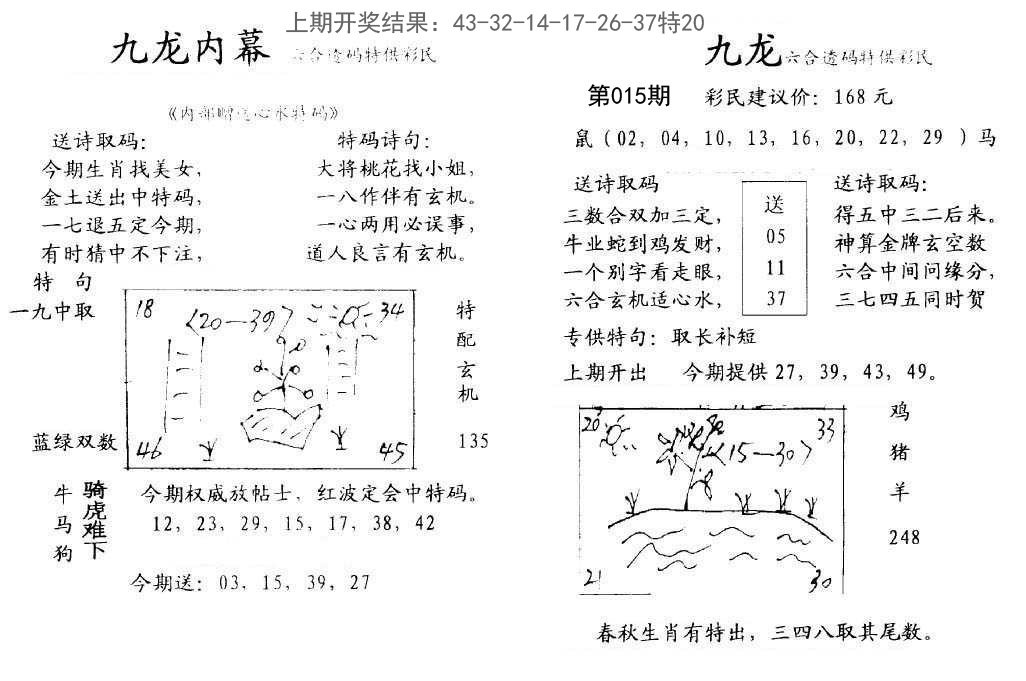 上期开奖结果：43-32-14-17-26-37特20
九龙内幕 六合透码特供彩民
《内部赠送心水特码》
送诗取码：
今期生肖找美女，
金土送出中特码，
一七退五定今期，
有时猜中不下注，
特码诗句：
大将桃花找小姐，
一八作伴有玄机。
一心两用必误事，
道人良言有玄机。
特 句
一九中取
蓝绿双数
18
〈20—39〉
34
46
45
特配玄机
135
牛马狗
骑虎难下
今期权威放帖士，红波定会中特码。
12，23，29，15，17，38，42
今期送：03，15，39，27
九龙六合透码特供彩民
第015期 彩民建议价：168元
鼠（02，04，10，13，16，20，22，29 ）马
送诗取码
三数合双加三定，
牛业蛇到鸡发财，
一个别字看走眼，
六合玄机适心水，
送
05
11
37
送诗取码：
得五中三二后来。
神算金牌玄空数
六合中间问缘分，
三七四五同时贺
专供特句：取长补短
上期开出 今期提供27，39，43，49。
20
33
〈15—30〉
21
30
鸡
猪
羊
248
春秋生肖有特出，三四八取其尾数。